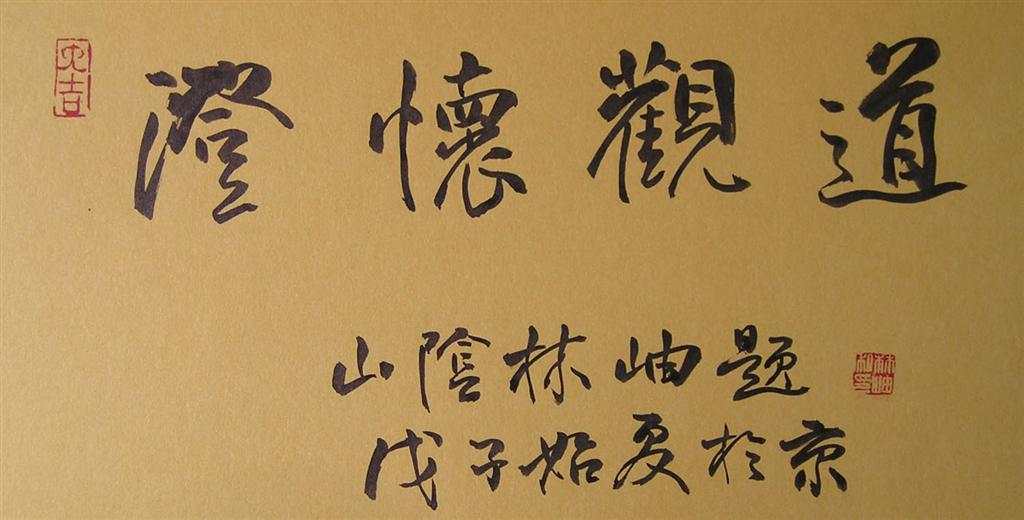 澄懷觀道
山陰林岫題
戊子始夏於京
大吉
林岫